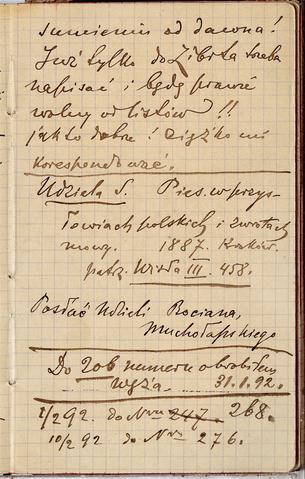 sumieniu od dawna!
Już tylko do Zibrta trzeba
napisać i będę prawie
wolny od listów!!
jak to dobrze! Ciężko mi
korespondować.
Udziela S. Pies. w przys-
łowiach polskich i zwrotach
mowy. 1887. Kraków.
patrz. Wisła III. 458.
Posłać Udzieli Bociana,
Muchołapskiego
Do 206 numeru obrobiłem
węża. 31.1.92.
1/2 92. do Nru 247. 268.
10/2 92 do Nru 276.